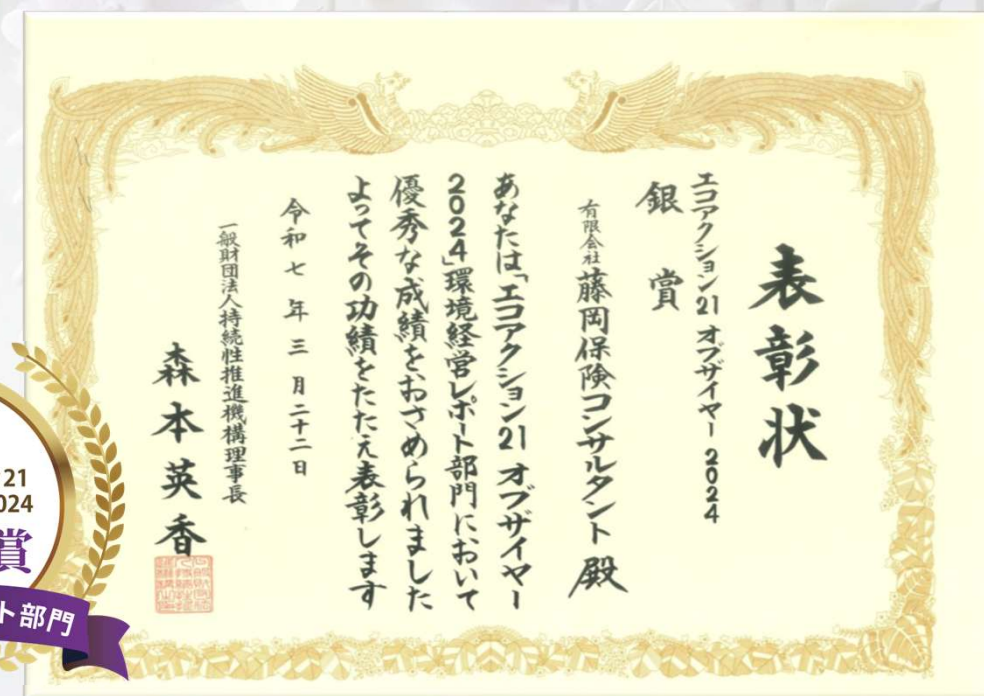 表彰状
エコアクション21 オブザイヤー 2024
銀賞
有限会社 藤岡保険コンサルタント 殿
あなたは「エコアクション21 オブザイヤー
2024」環境経営レポート部門において
優秀な成績をおさめられました
よってその功績をたたえ表彰します
令和七年三月二十二日
一般財団法人持続性推進機構理事長
森本英香
21
024
賞
ト部門